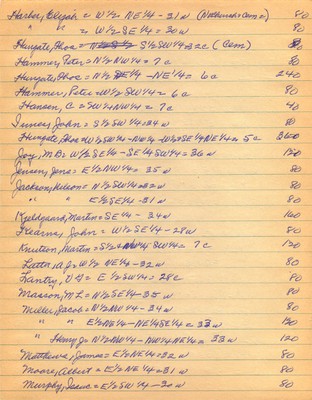 Harbor, Elijah = W½ NE¼ - 31 w (Netherush = Cem =) 80
" " = W½ - SE¼ = 30 w 80
Hungate, Thos = S½ SW¼ = 32 c (Cem) 80
Hammer, Peter = N½ NW¼ = 7 c 80
Hungate, Thos = N½ SE¼ - NE¼ = 6 c 240
Hammer, Peter = W½ SW¼ = 6 c 80
Hanson, C = SW¼ NW¼ = 7 c 40
Iverson, John = S½ SW¼ = 34 w 80
Hungate, Thos = W½ SW¼ - NW¼ - W½ SE¼ NE¼ = 5 c 360
Joy, M B = W½ SE¼ - SE¼ SW¼ = 36 w 120
Jensen, Jens = E½ NW¼ = 35 w 80
Jackson, Nelson = N½ SW¼ = 32 w 80
" " E½ SE¼ - 31 w 80
Kjeldgaard, Martin = SE¼ - 34 w 160
Kearns, John = W½ SE¼ - 28 w 80
Knutson, Martin = S½ SW¼ = 7 c 120
Latta, A J = W½ NE¼ - 32 w 80
Lantry, V G = E½ SW¼ = 28 c 80
Masson, M L = N½ SE¼ - 35 w 80
Miller, Jacob = N½ NW¼ - 34 w 80
" " E½ NE¼ - NE¼ SE¼ = 33 w 120
" Henry J = N½ NW¼ - NW¼ NE¼ = 33 w 120
Matthews, James = E½ NE¼ = 32 w 80
Moore, Albert = E½ NE¼ = 31 w 80
Murphy, Isaac = E½ SW¼ - 30 w 80